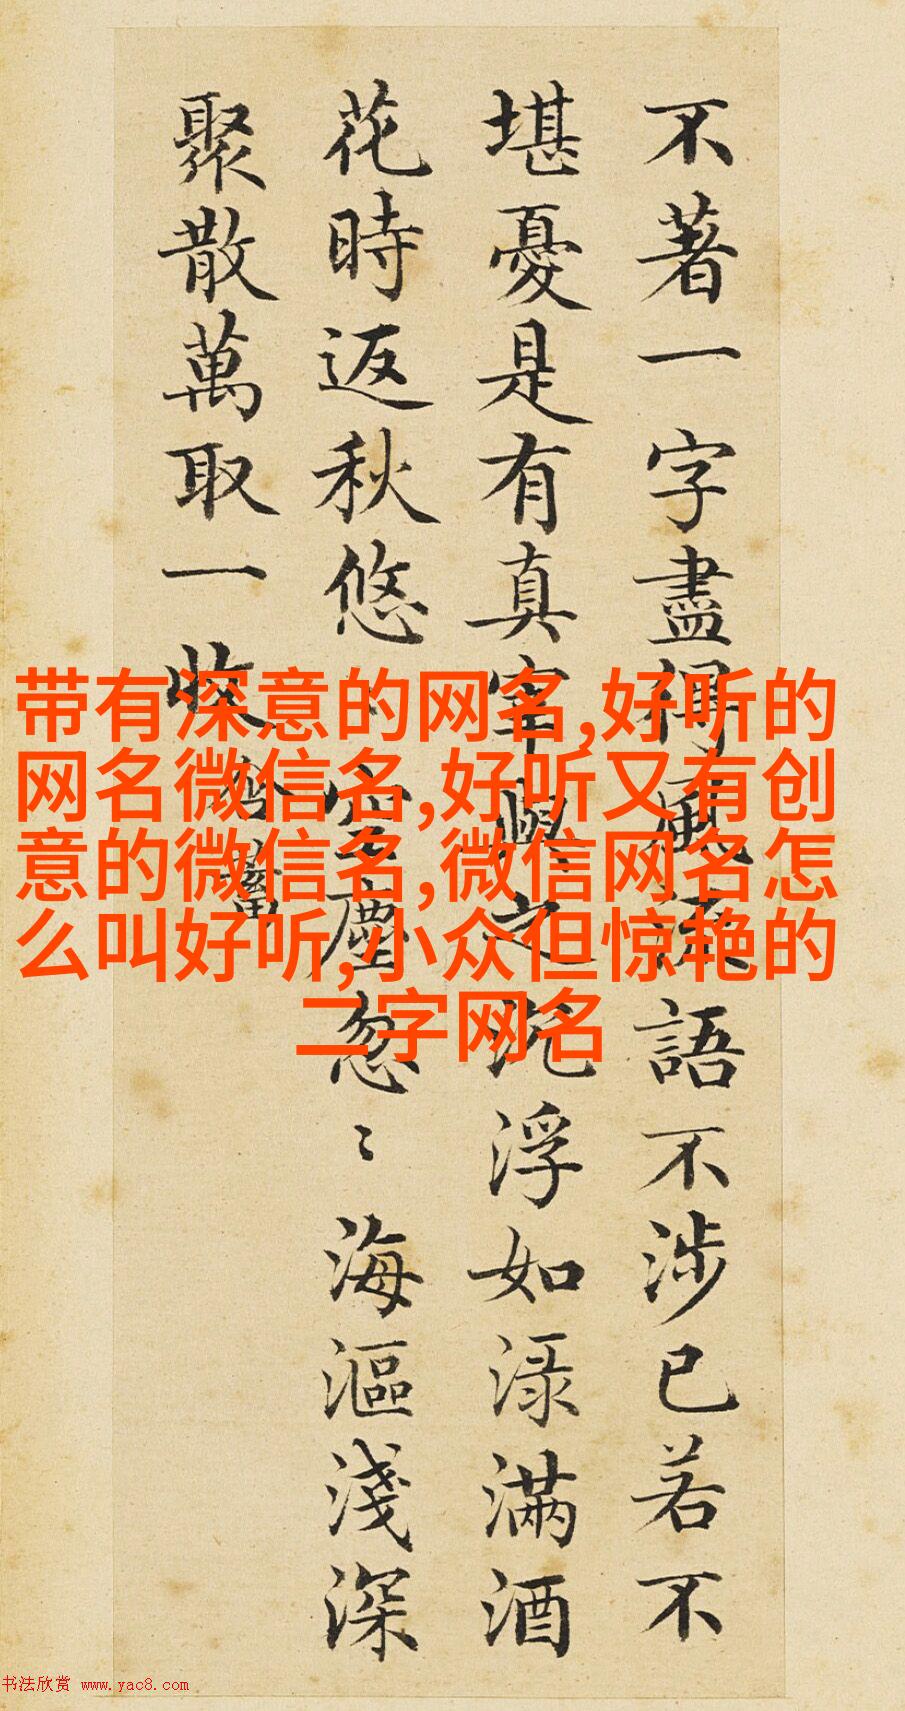 不著一字盡得風流語不涉已若不
堪憂是有真宰與之沉浮如淥滿酒
花時返秋悠〻空塵忽〻海漚淺深
聚散萬取一收 含蓄
带有深意的网名,好听的
网名微信名,好听又有创
意的微信名,微信网名怎
么叫好听,小众但惊艳的
二字网名
书法欣赏 www.yac8.com